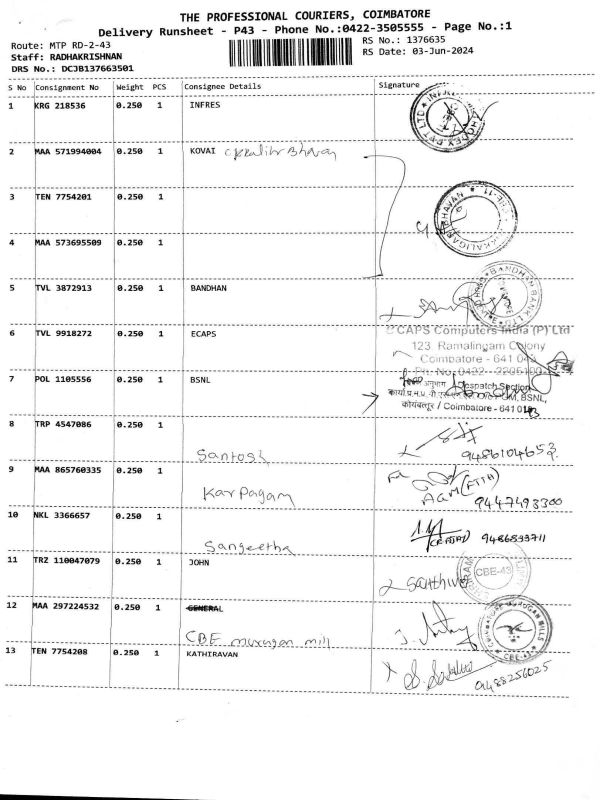 THE PROFESSIONAL COURIERS, COIMBATORE
Delivery Runsheet - P43 - Phone No.:0422-3505555 - Page No.:1
Route: MTP RD-2-43
RS No.: 1376635
Staff: RADHAKRISHNAN
RS Date: 03-Jun-2024
DRS No.: DCJB137663501
S No Consignment No Weight PCS Consignee Details Signature
1 KRG 218536 0.250 1 INFRES
2 MAA 571994004 0.250 1 KOVAI
3 TEN 7754201 0.250 1
4 MAA 573695509 0.250 1
5 TVL 3872913 0.250 1 BANDHAN
BANDHAN BANK LTD
6 TVL 9918272 0.250 1 ECAPS
CAPS Computers India (P) Ltd
123, Ramalingam Colony
Coimbatore - 641 043
7 POL 1105556 0.250 1 BSNL
अनुभाग / Despatch Section
BSNL,
कोयंबत्तूर / Coimbatore - 641 043
8 TRP 4547086 0.250 1
Santosh
9486104653
9 MAA 865760335 0.250 1
Karpagam
AGM (FTTH)
9447493300
10 NKL 3366657 0.250 1
Sangeetha
11 TRZ 110047079 0.250 1 JOHN
CBE-43
12 MAA 297224532 0.250 1 GENERAL
CBE murugan mill
13 TEN 7754208 0.250 1 KATHIRAVAN
9488256025